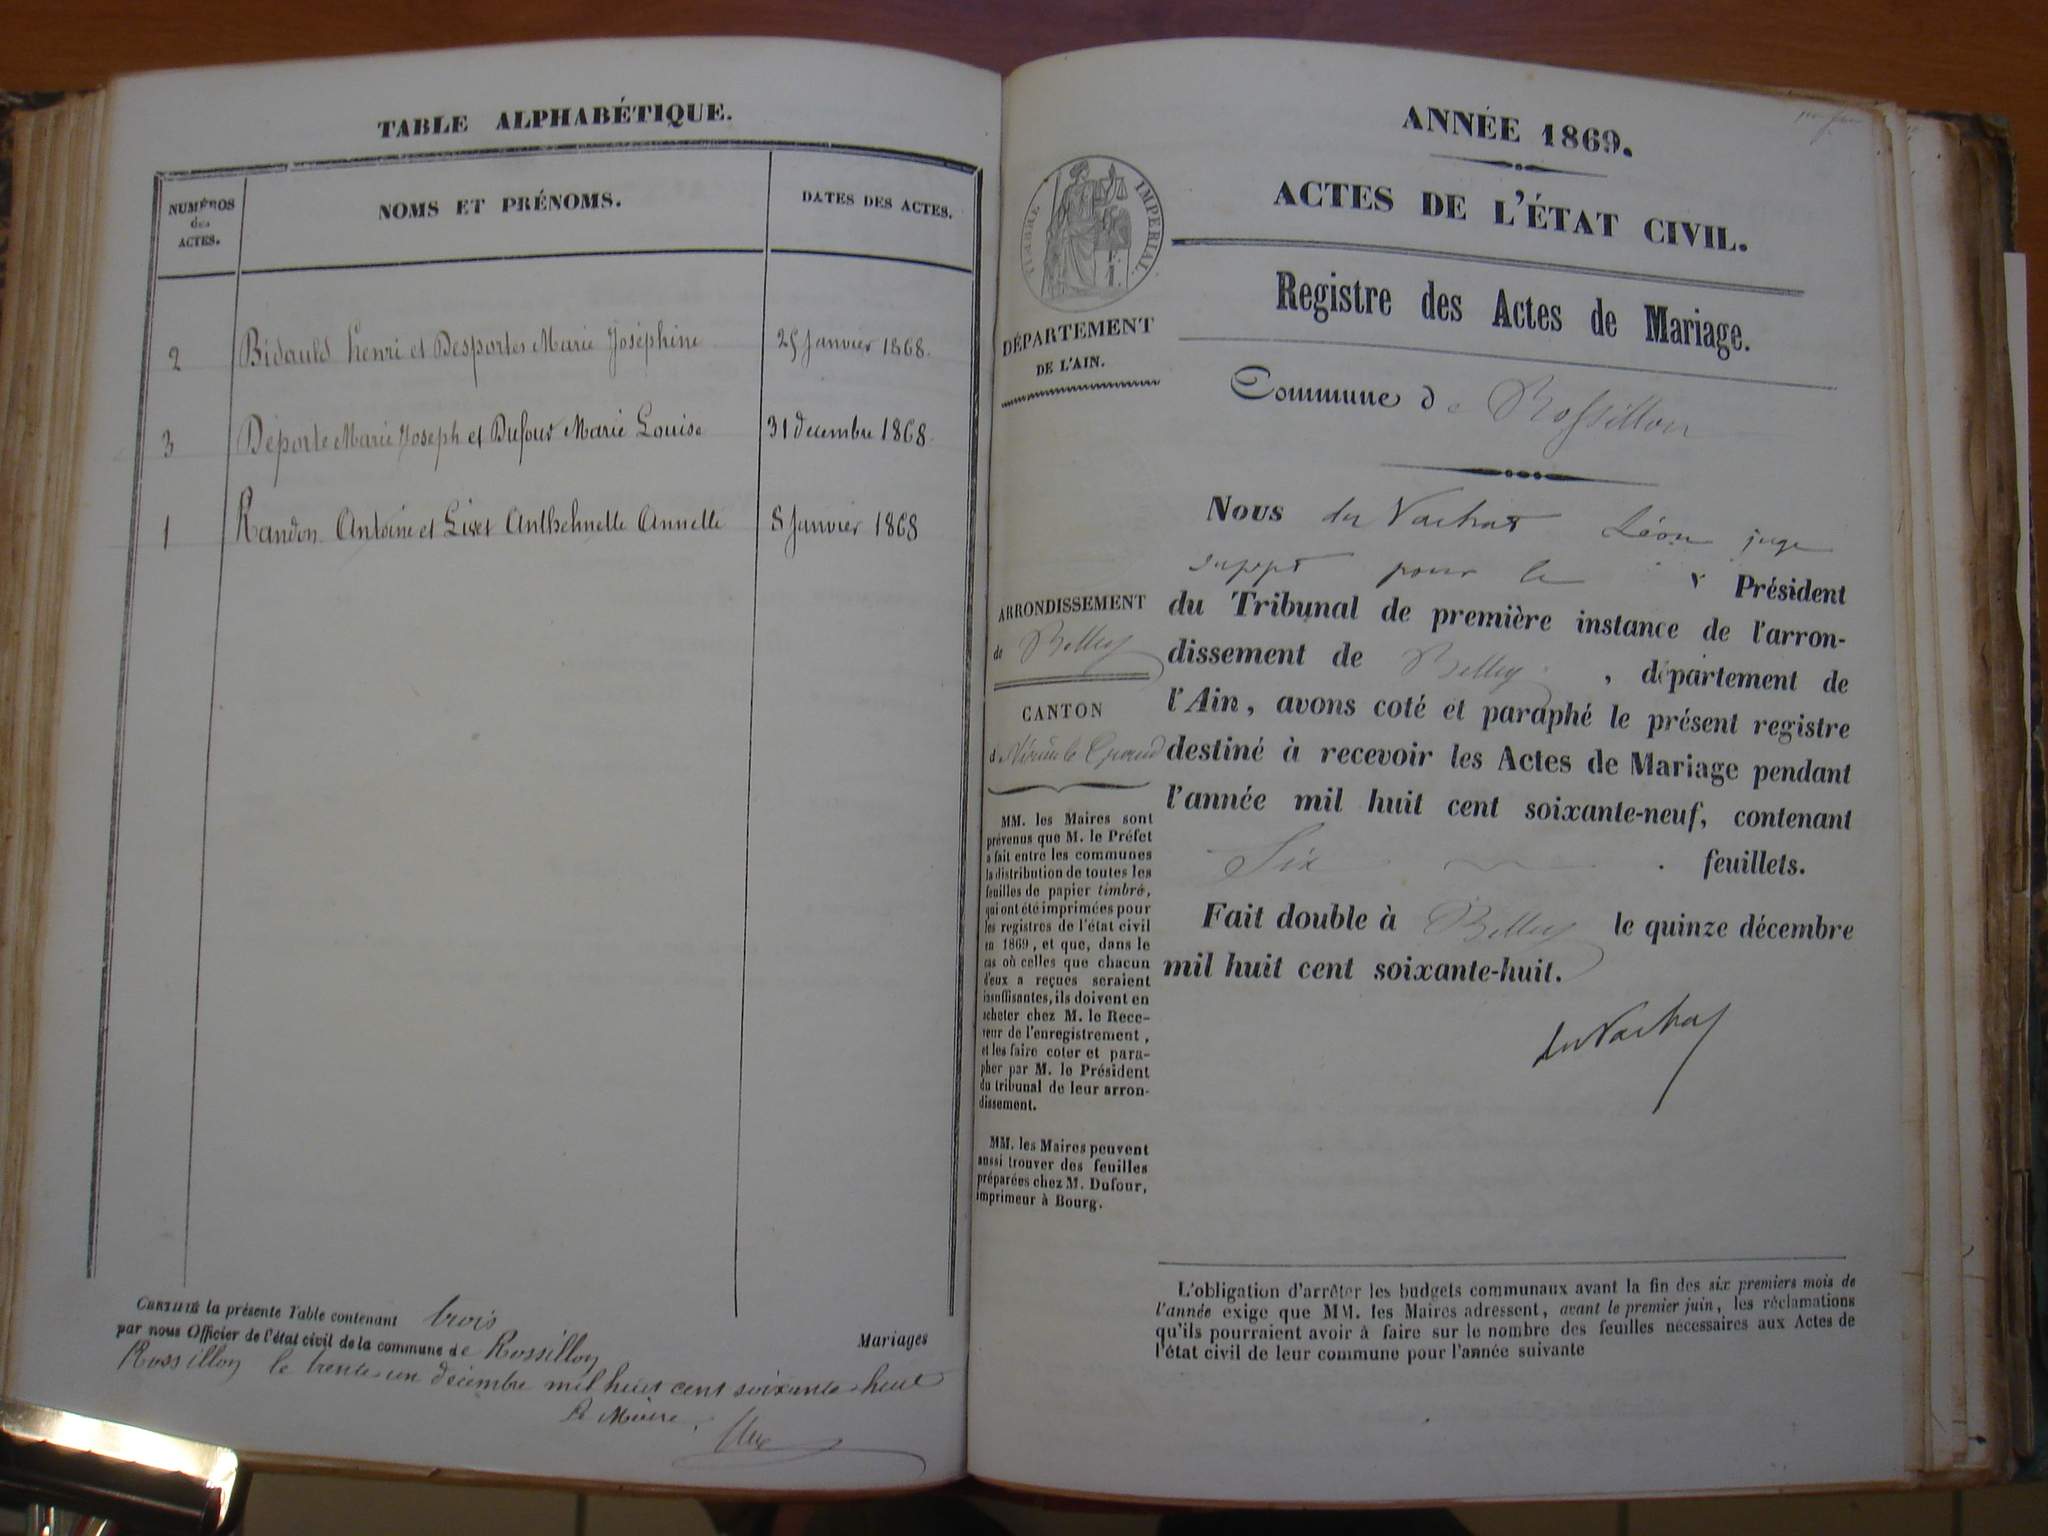 TABLE ALPHABÉTIQUE.
NUMÉROS
des
ACTES.
NOMS ET PRÉNOMS.
DATES DES ACTES.
2 Bidauld henri et Desportes Marie Joséphine 25 Janvier 1868.
3 Déporte Marie Joseph et Dufour Marie Louise 31 decembre 1868.
1 Randon Antoine et Livet Anthelmette Annette 8 Janvier 1868
CERTIFIÉ la présente Table contenant trois Mariages
par nous Officier de l'état civil de la commune de Rossillon
Rossillon le trente un décembre mil huit cent soixante huit
Le Maire
ANNÉE 1869.
ACTES DE L'ÉTAT CIVIL.
TIMBRE IMPERIAL.
Registre des Actes de Mariage.
DÉPARTEMENT
DE L'AIN.
Commune de Rossillon
Nous du Vachat Léon juge
suppt pour le Président
du Tribunal de première instance de l'arron-
dissement de Belley, département de
l'Ain, avons coté et paraphé le présent registre
destiné à recevoir les Actes de Mariage pendant
l'année mil huit cent soixante-neuf, contenant
Six feuillets.
Fait double à Belley le quinze décembre
mil huit cent soixante-huit.
du Vachat
ARRONDISSEMENT
de Belley
CANTON
de Virieu le Grand
MM. les Maires sont
prévenus que M. le Préfet
a fait entre les communes
la distribution de toutes les
feuilles de papier timbré,
qui ont été imprimées pour
les registres de l'état civil
en 1869, et que, dans le
cas où celles que chacun
d'eux a reçues seraient
insuffisantes, ils doivent en
acheter chez M. le Rece-
veur de l'enregistrement,
et les faire coter et para-
pher par M. le Président
du tribunal de leur arron-
dissement.
MM. les Maires peuvent
aussi trouver des feuilles
préparées chez M. Dufour,
imprimeur à Bourg.
L'obligation d'arrêter les budgets communaux avant la fin des six premiers mois de
l'année exige que MM. les Maires adressent, avant le premier juin, les réclamations
qu'ils pourraient avoir à faire sur le nombre des feuilles nécessaires aux Actes de
l'état civil de leur commune pour l'année suivante